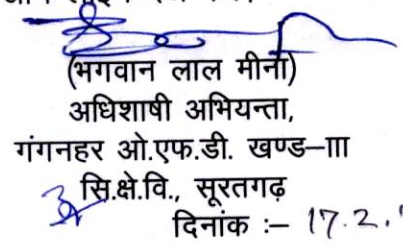 (भगवान लाल मीना)
अधिशाषी अभियन्ता,
गंगनहर ओ.एफ.डी. खण्ड–III
सि.क्षे.वि., सूरतगढ़
दिनांक :– 17.2.